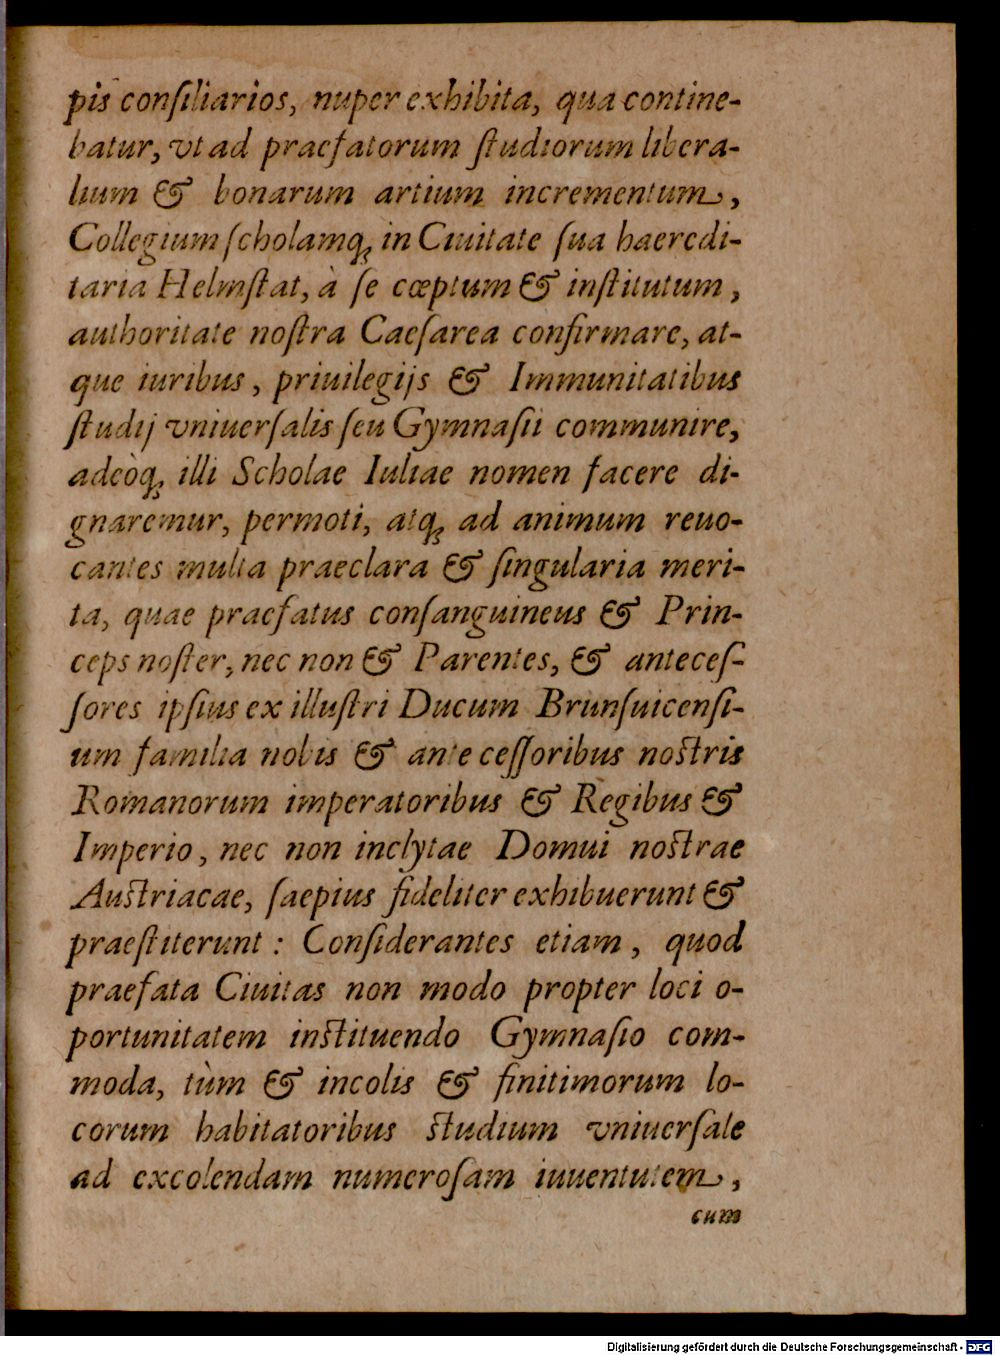 pis conſiliarios, nuper exhibita, qua contine-
batur, vt ad praefatorum ſtudiorum libera-
lium & bonarum artium incrementum,
Collegium ſcholamq; in Ciuitate ſua haeredi-
taria Helmſtat, à ſe cœptum & inſtitutum,
authoritate noſtra Caeſarea confirmare, at-
que iuribus, priuilegijs & Immunitatibus
ſtudij vniuerſalis ſeu Gymnaſii communire,
adeòq; illi Scholae Iuliae nomen facere di-
gnaremur, permoti, atq; ad animum reuo-
cantes multa praeclara & ſingularia meri-
ta, quae praefatus conſanguineus & Prin-
ceps noſter, nec non & Parentes, & anteceſ-
ſores ipſius ex illuſtri Ducum Brunſuicenſi-
um familia nobis & ante ceſſoribus noſtris
Romanorum imperatoribus & Regibus &
Imperio, nec non inclytae Domui noſtrae
Auſtriacae, ſaepius fideliter exhibuerunt &
praeſtiterunt : Conſiderantes etiam, quod
praefata Ciuitas non modo propter loci o-
portunitatem inſtituendo Gymnaſio com-
moda, tùm & incolis & finitimorum lo-
corum habitatoribus ſtudium vniuerſale
ad excolendam numeroſam iuuentutem,
cum
Digitalisierung gefördert durch die Deutsche Forschungsgemeinschaft - DFG